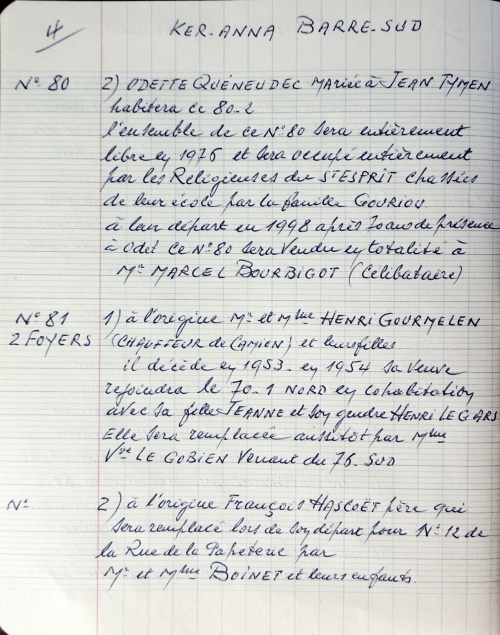 4
KER-ANNA BARRE-SUD
N° 80 2) ODETTE QUÉNEUDEC Mariée à JEAN TYMEN
habitera ce 80-2
l'ensemble de ce N° 80 sera entièrement
libre en 1976 et sera occupé entièrement
par les Religieuses du ST ESPRIT chassées
de leur école par la famille GOURIOU.
à leur départ en 1998 après 70 ans de présence
à Odet ce N° 80 sera vendu en totalité à
Mr MARCEL BOURBIGOT (Célibataire)
N° 81 1) à l'origine Mr et Mme HENRI GOURMELEN
2 FOYERS (CHAUFFEUR de CAMION) et leurs filles
il décède en 1953. en 1954 sa veuve
rejoindra le 70-1 NORD en cohabitation
avec sa fille JEANNE et son gendre HENRI LE GARS
Elle sera remplacée aussitôt par Mme
Vve LE GOBIEN venant du 76-SUD
N° 2) à l'origine François HASCOËT père qui
sera remplacé lors de son départ pour N° 12 de
la Rue de la Papeterie par
Mr et Mme BOINET et leurs enfants.